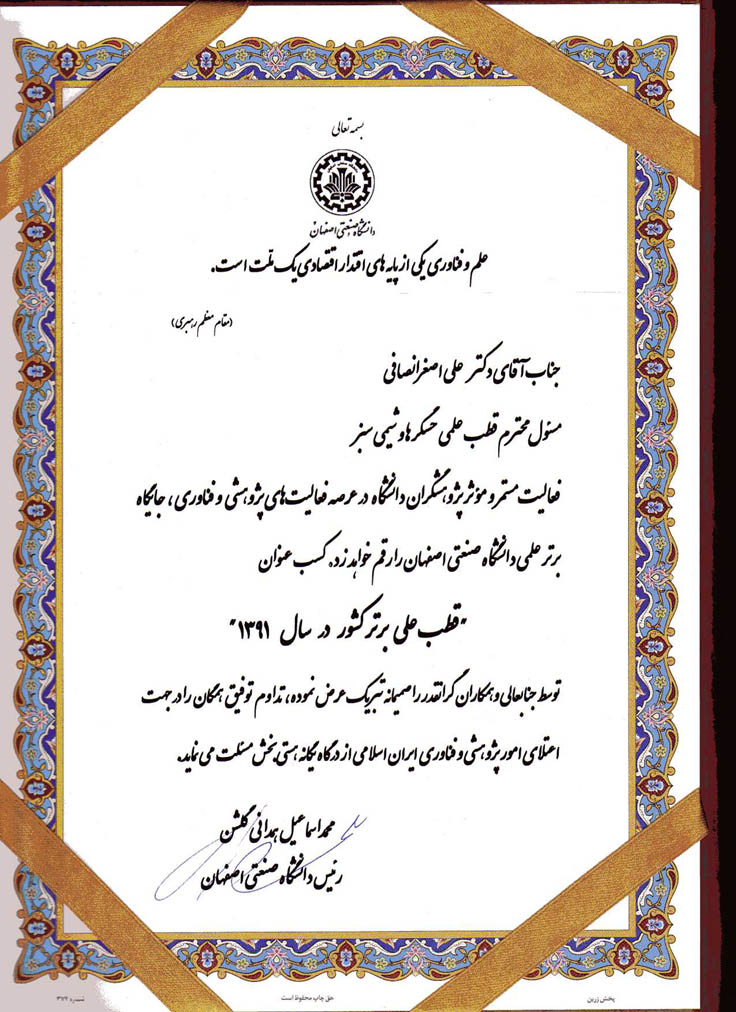 بسمه تعالی
دانشگاه صنعتی اصفهان
علم و فناوری یکی از پایه های اقتدار اقتصادی یک ملّت است.
(مقام معظم رهبری)
جناب آقای دکتر علی اصغر انصافی
مسئول محترم قطب علمی حسگرها و شیمی سبز
فعالیت مستمر و مؤثر پژوهشگران دانشگاه در عرصه فعالیت‌های پژوهشی و فناوری، جایگاه
برتر علمی دانشگاه صنعتی اصفهان را رقم خواهد زد. کسب عنوان
"قطب علمی برتر کشور در سال ۱۳۹۱"
توسط جنابعالی و همکاران گرانقدر را صمیمانه تبریک عرض نموده، تداوم توفیق همگان را در جهت
اعتلای امور پژوهشی و فناوری ایران اسلامی از درگاه یگانه هستی بخش مسئلت می نماید.
محمد اسماعیل همدانی گلشن
رئیس دانشگاه صنعتی اصفهان
پخش زرین
حق چاپ محفوظ است
شماره